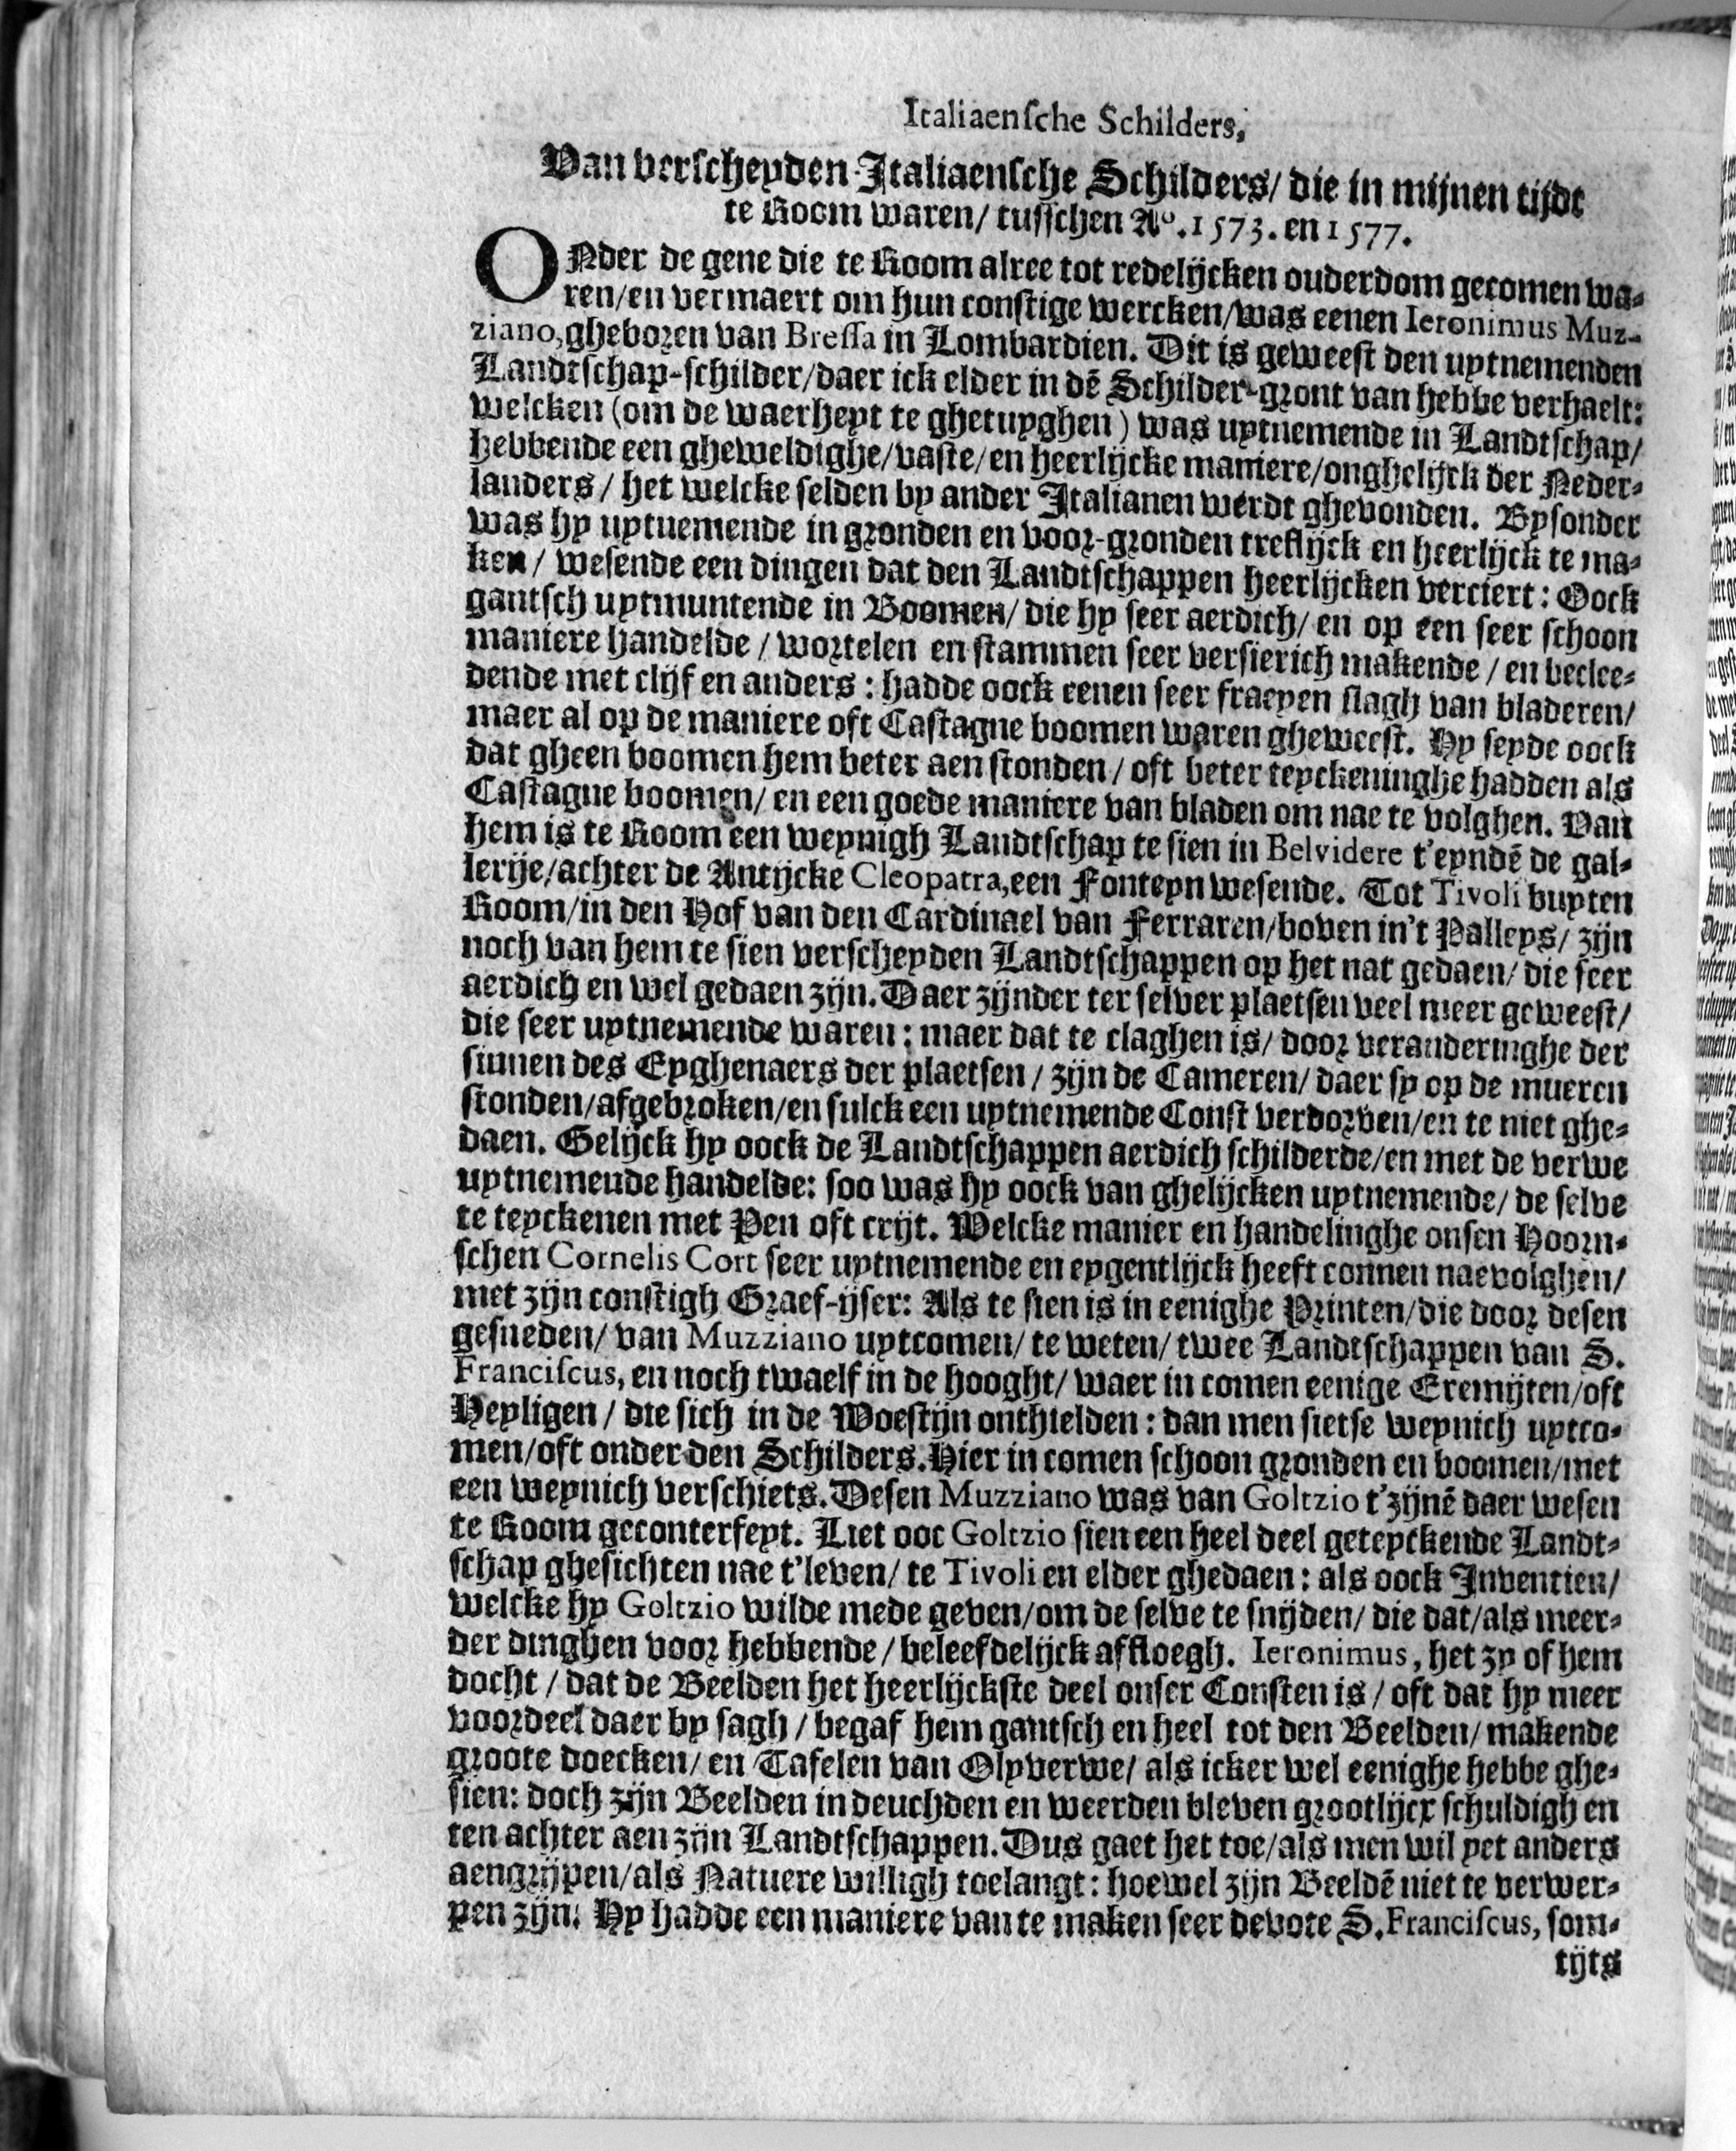 Italiaensche Schilders,
Van verscheyden Italiaensche Schilders/ die in mijnen tijdt
te Room waren/ tusschen Aº. 1573. en 1577.
ONder de gene die te Room alree tot redelijcken ouderdom gecomen wa-
ren/en vermaert om hun constige wercken/was eenen Ieronimus Muz-
ziano, gheboren van Bressa in Lombardien. Dit is geweest den uytnemenden
Landtschap-schilder/daer ick elder in dē Schilder-gront van hebbe verhaelt:
welcken (om de waerheyt te ghetuyghen) was uytnemende in Landtschap/
hebbende een gheweldighe/vaste/en heerlijcke maniere/onghelijck der Neder-
landers/ het welcke selden by ander Italianen werdt ghevonden. Bysonder
was hy uytnemende in gronden en voor-gronden treflijck en heerlijck te ma-
ken/ wesende een dingen dat den Landtschappen heerlijcken verciert: Oock
gantsch uytmuntende in Boomen/ die hy seer aerdich/ en op een seer schoon
maniere handelde/ wortelen en stammen seer versierich makende/ en beclee-
dende met clijf en anders: hadde oock eenen seer fraeyen slagh van bladeren/
maer al op de maniere oft Castagne boomen waren gheweest. Hy seyde oock
dat gheen boomen hem beter aen stonden/ oft beter teyckeninghe hadden als
Castagne boomen/ en een goede maniere van bladen om nae te volghen. Van
hem is te Room een weynigh Landtschap te sien in Belvidere t'eyndē de gal-
lerije/achter de Antijcke Cleopatra, een Fonteyn wesende. Tot Tivoli buyten
Room/in den Hof van den Cardinael van Ferraren/boven in't Palleys/ zijn
noch van hem te sien verscheyden Landtschappen op het nat gedaen/ die seer
aerdich en wel gedaen zijn. Daer zijnder ter selver plaetsen veel meer geweest/
die seer uytnemende waren: maer dat te claghen is/ door veranderinghe der
sinnen des Eyghenaers der plaetsen/ zijn de Cameren/ daer sy op de mueren
stonden/afgebroken/en sulck een uytnemende Const verdorven/en te niet ghe-
daen. Gelijck hy oock de Landtschappen aerdich schilderde/en met de verwe
uytnemende handelde: soo was hy oock van ghelijcken uytnemende/ de selve
te teyckenen met Pen oft crijt. Welcke manier en handelinghe onsen Hoorn-
schen Cornelis Cort seer uytnemende en eygentlijck heeft connen naevolghen/
met zijn constigh Graef-ijser: Als te sien is in eenighe Printen/die door desen
gesneden/ van Muzziano uytcomen/ te weten/ twee Landtschappen van S.
Franciscus, en noch twaelf in de hooght/ waer in comen eenige Eremijten/oft
Heyligen/ die sich in de Woestijn onthielden: dan men sietse weynich uytco-
men/oft onder den Schilders. Hier in comen schoon gronden en boomen/met
een weynich verschiets. Desen Muzziano was van Goltzio t'zijnē daer wesen
te Room geconterfeyt. Liet ooc Goltzio sien een heel deel geteyckende Landt-
schap ghesichten nae t'leven/ te Tivoli en elder ghedaen: als oock Inventien/
welcke hy Goltzio wilde mede geven/om de selve te snijden/ die dat/als meer-
der dinghen voor hebbende/ beleefdelijck afsloegh. Ieronimus, het zy of hem
docht/ dat de Beelden het heerlijckste deel onser Consten is/ oft dat hy meer
voordeel daer by sagh/ begaf hem gantsch en heel tot den Beelden/ makende
groote doecken/ en Tafelen van Olyverwe/ als icker wel eenighe hebbe ghe-
sien: doch zijn Beelden in deuchden en weerden bleven grootlijcx schuldigh en
ten achter aen zijn Landtschappen. Dus gaet het toe/als men wil yet anders
aengrijpen/als Natuere willigh toelangt: hoewel zijn Beeldē niet te verwer-
pen zijn. Hy hadde een maniere van te maken seer devote S. Franciscus, som-
tijts